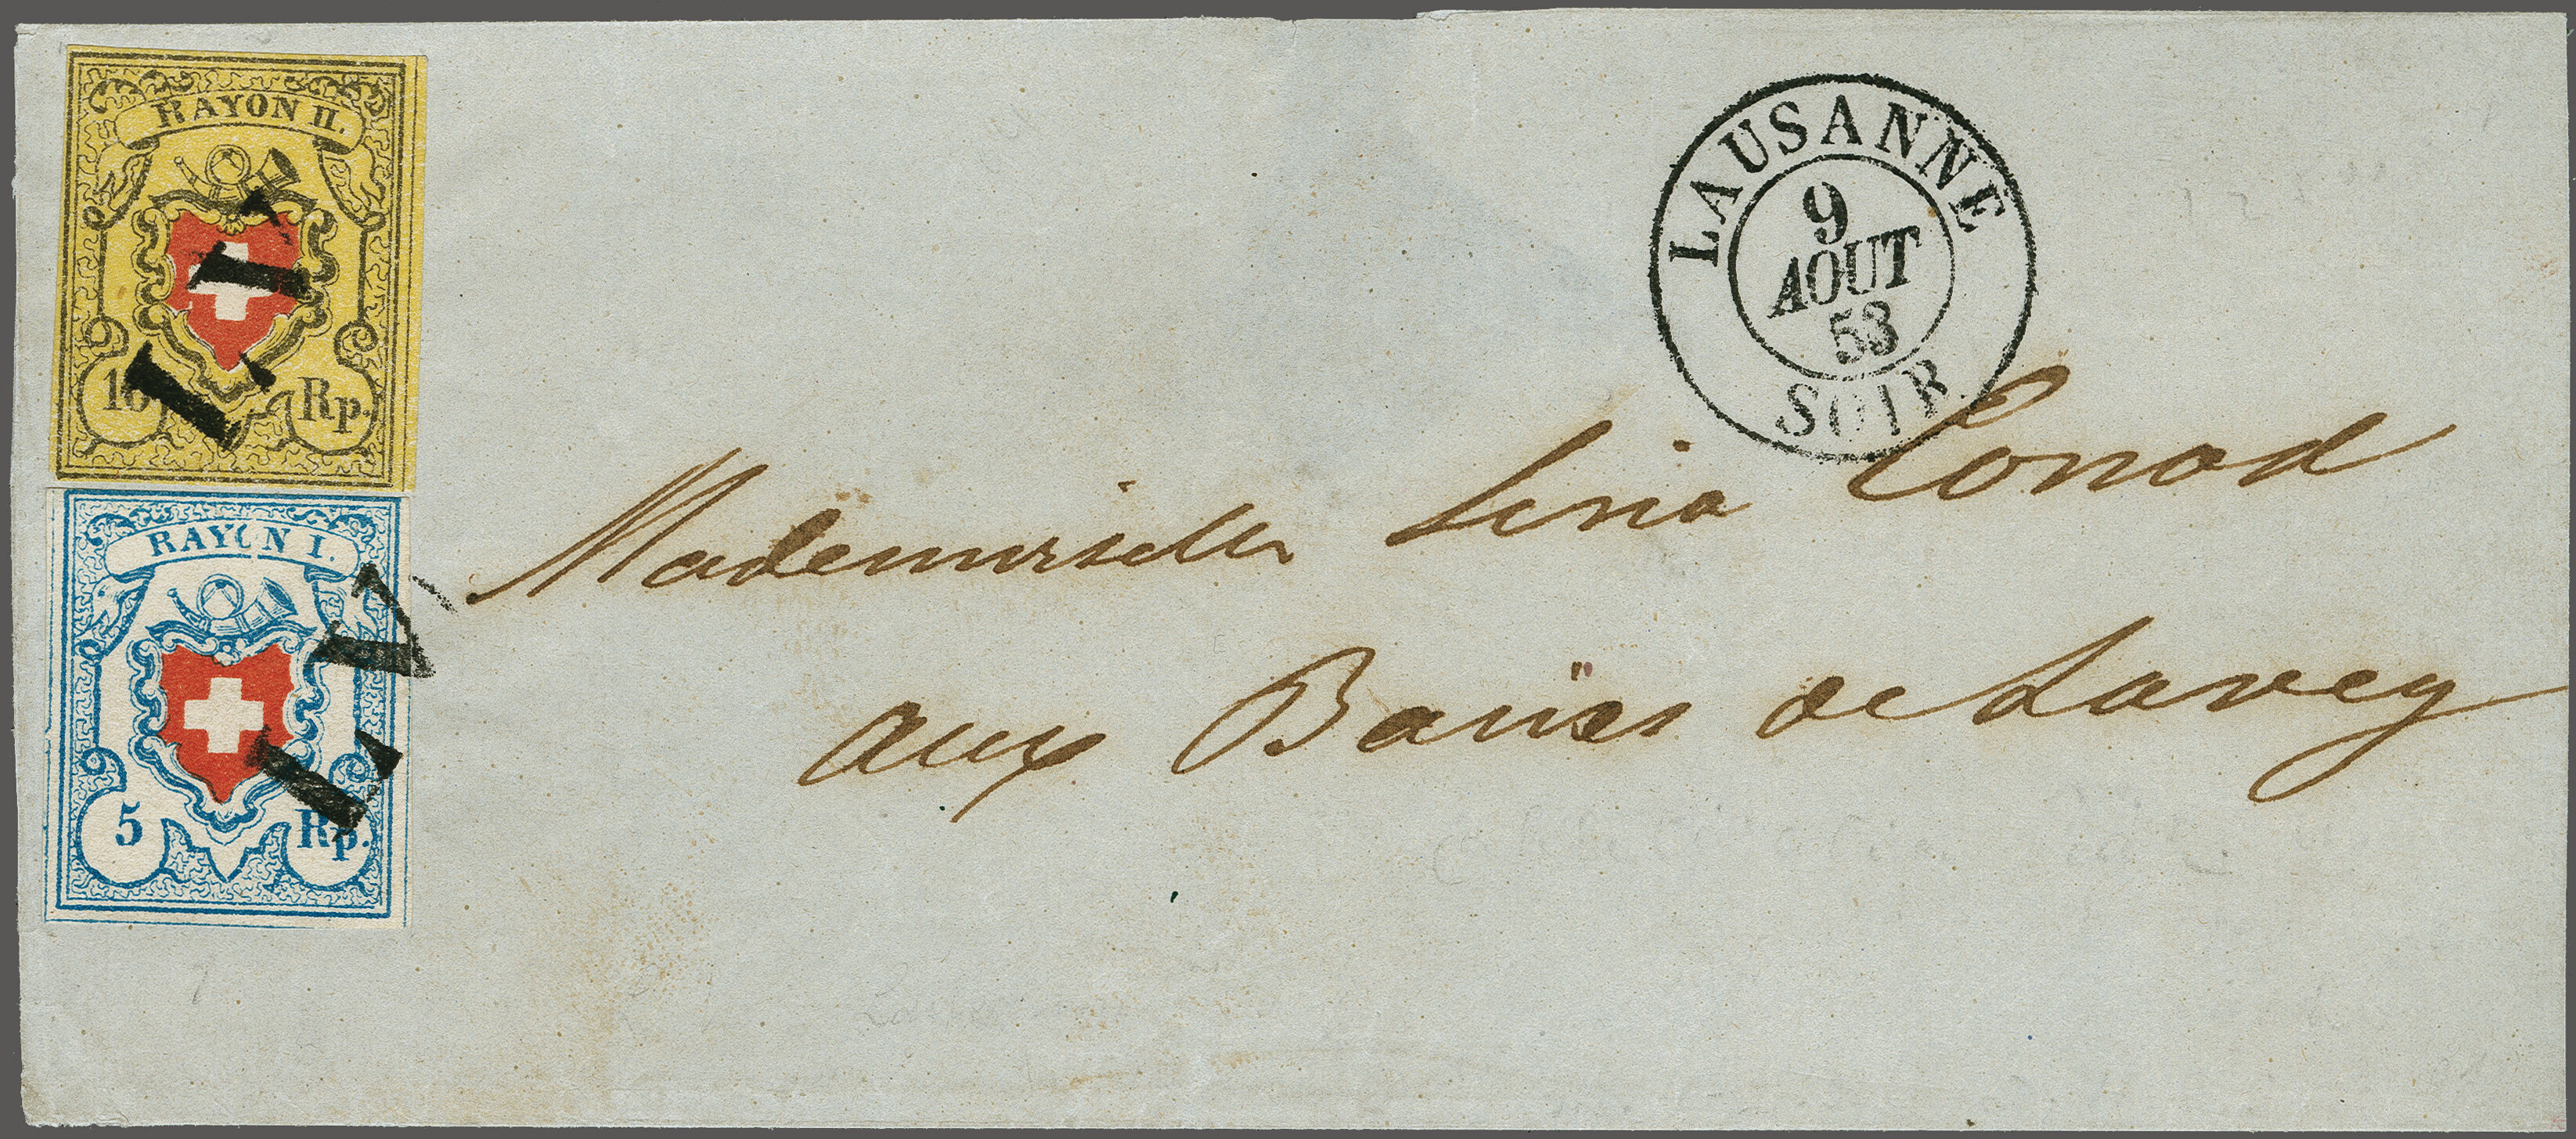 RAYON II.
10 Rp.
RAYON I.
5 Rp.
LAUSANNE
9
AOUT
53
SOIR
Mademoiselle Conod
aux Bains de Lavey